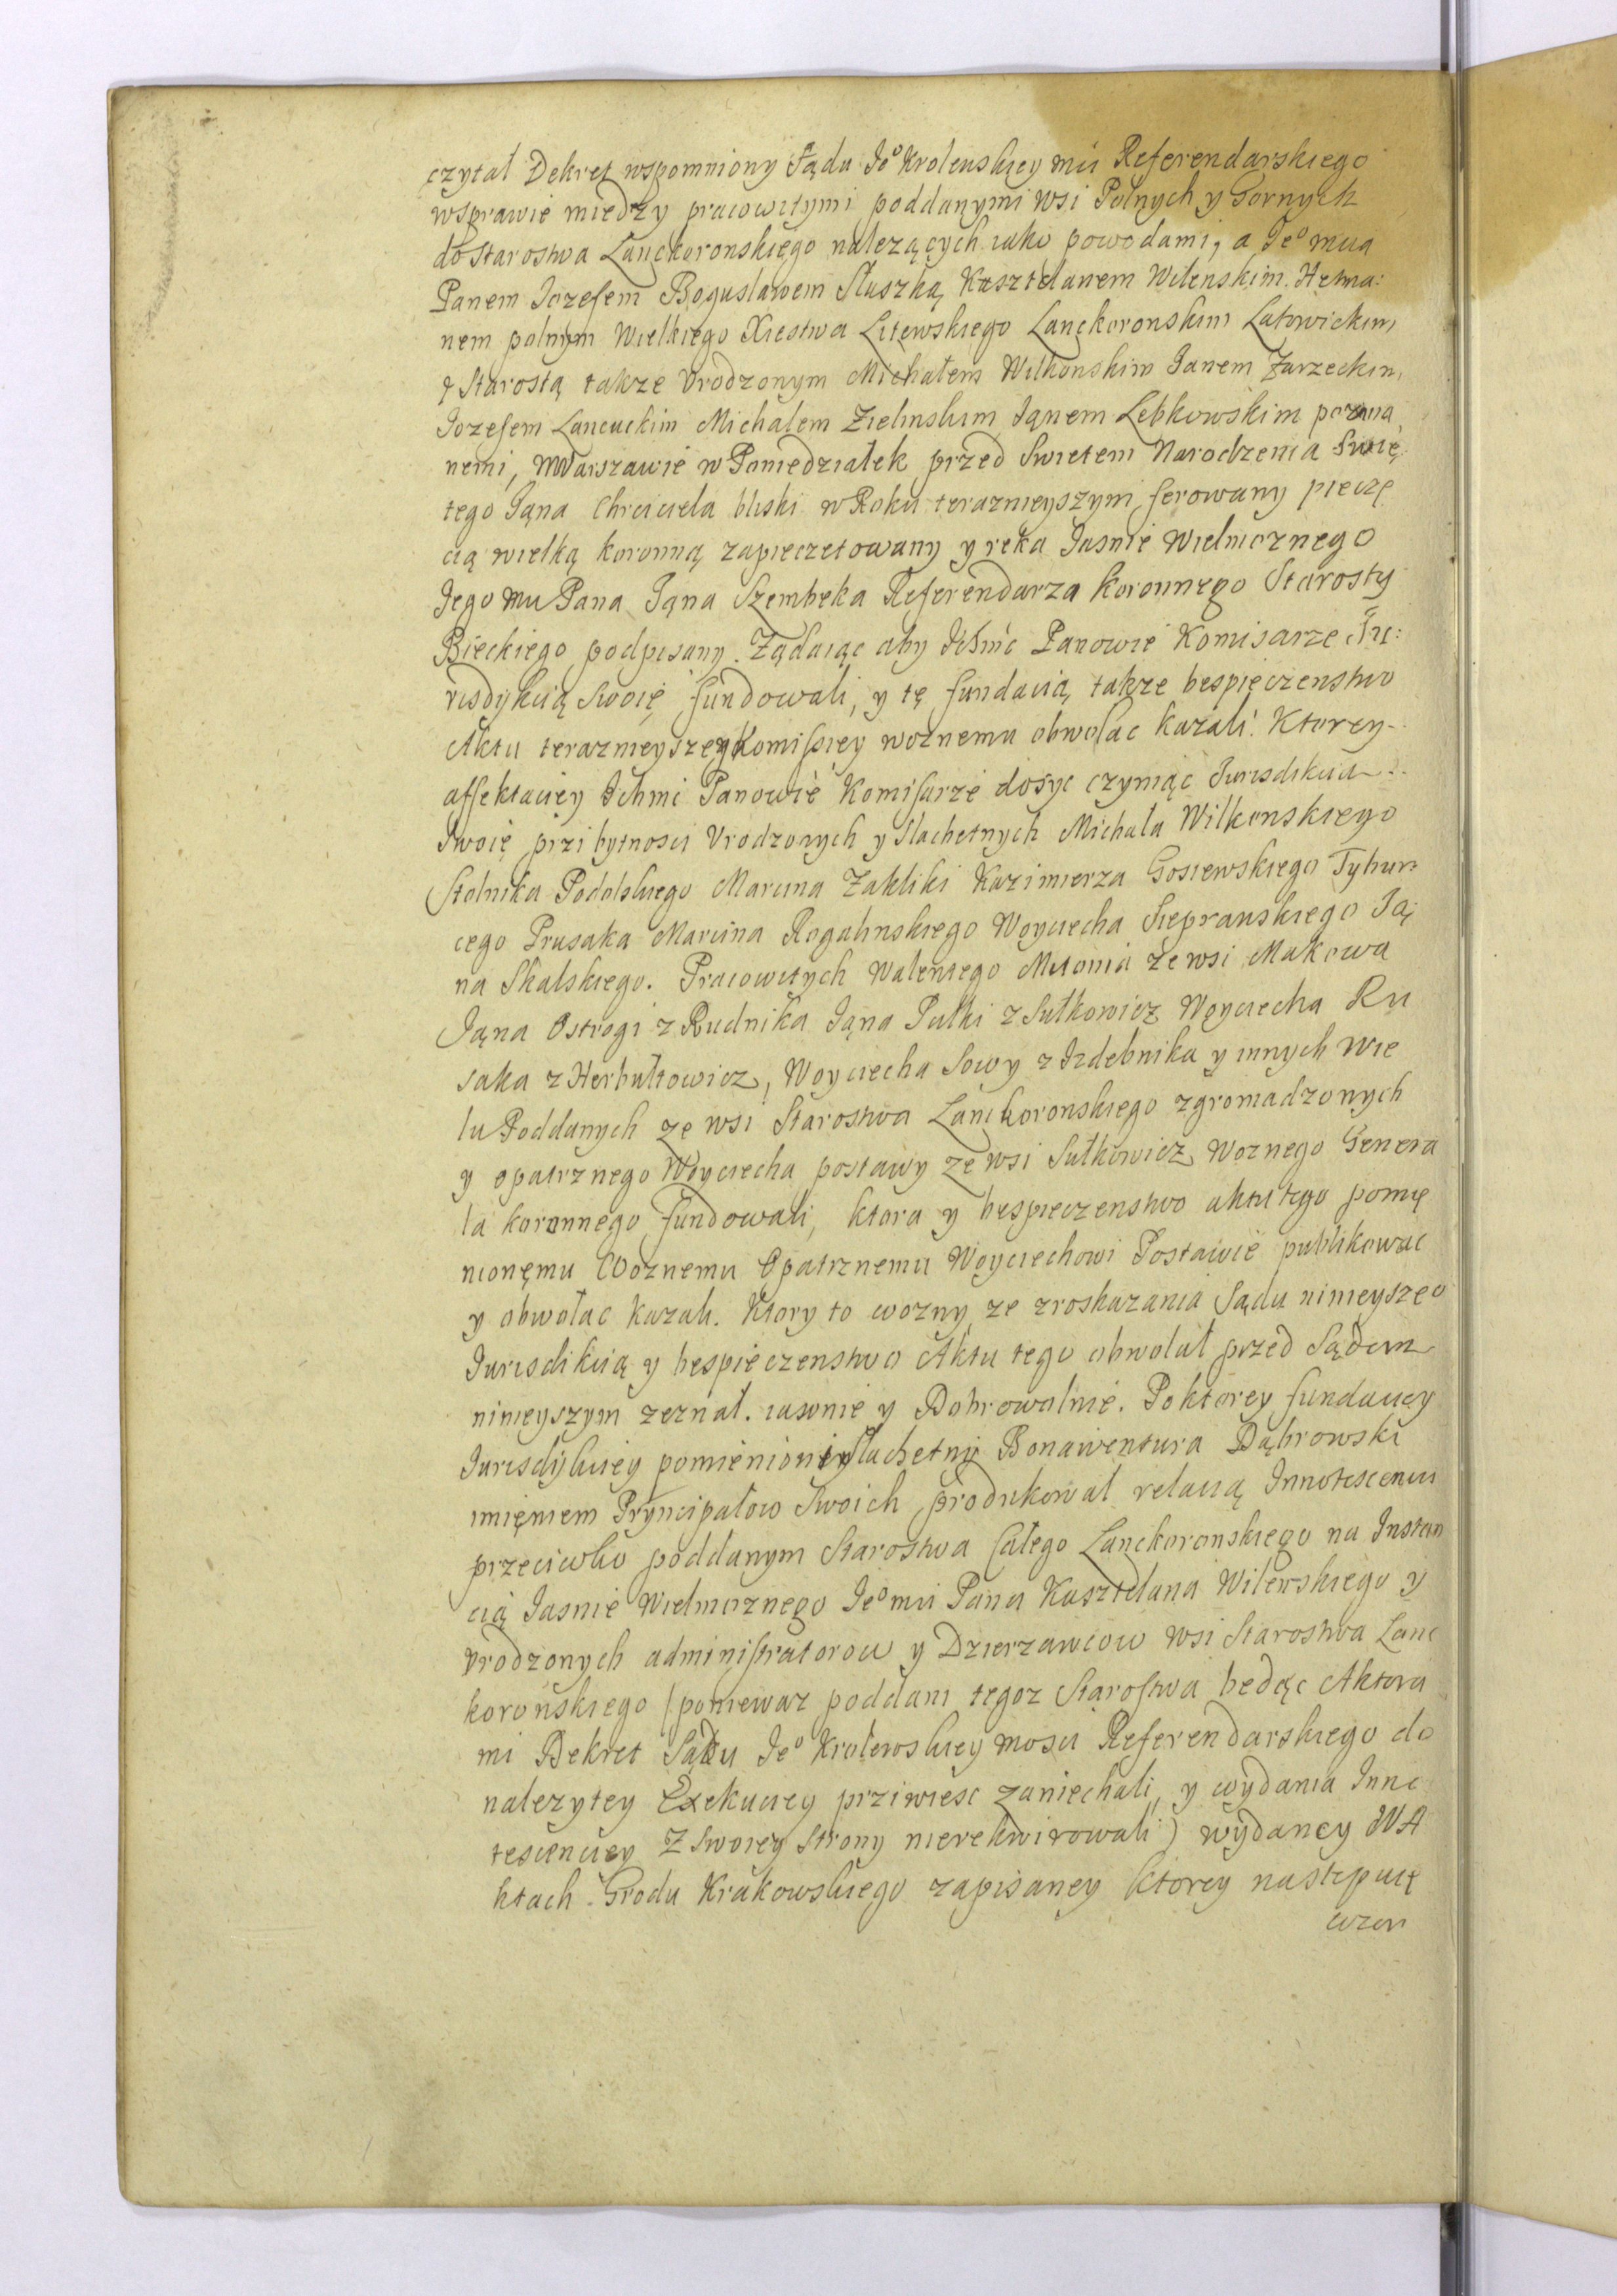 czytał Dekret wspomniony Sądu Jeº Krolewskiey mći Referendarskiego
wsprawie między pracowitymi poddanymi wsi Polnych y Gornych
do Starostwa Lanckoronskiego należących iako powodami, a Jeº mcią
Panem Jozefem Bogusławem Słuszką Kasztelanem Wilenskim. Hetma:
nem polnym Wielkiego Xiestwa Litewskiego Lanckoronskim Latowickim
y Starostą takze Vrodzonym Michałem Wilkonskim Janem Zarzeckim,
Jozefem Lancuckim Michałem Zielinskim Jąnem Lebkowskim pozwa
nemi, wWarszawie w Poniedziałek przed Swietem Narodzenia Swię
tego Jąna Chrciciela bliski w Roku teraznieyszym ferowany pieczę
cią wielką koronną zapieczetowany y ręka Jasnie Wielmoznego
Jego mći Pana Jąna Szembeka Referendarza koronnego Starosty
Bieckiego podpisany. Ządaiąc aby Ichmć Panowie Komisarze Ju:
risdykcią swoię fundowali, y tę fundacią takze bespieczenstwo
Aktu teraznieyszey Komissiey woznemu obwołac kazali. Ktorey
affektaciey Ichmć Panowie Komisarze dosyc czyniąc Jurisdikcia
Swoię przi bytnosci Vrodzonych y Slachetnych Michała Wilkonskiego
Stolnika Podolskiego Marcina Zakliki Kazimierza Gosiewskiego Tybur:
cego Prusaka Marcina Rogalinskiego Woyciecha Sieprawskiego Ją
na Skalskiego. Pracowitych Walentego Mitonia ze wsi Makowa
Jąna Ostrogi z Rudnika Jąna Pułki z Sułkowicz Woyciecha Ru
saka z Herbułtowicz, Woyciecha Sowy z Izdebnika y innych wie
lu Poddanych ze wsi Starostwa Lanckoronskiego zgromadzonych
y opatrznego Woyciecha postawy ze wsi Sułkowicz Woznego Genera
ła koronnego fundowali, ktora y bespieczenstwo aktu tego pomię
nionęmu Woznemu Opatrznemu Woyciechowi Postawie publikowac
y obwołac kazali. Ktory to wozny ze zroskazania Sądu ninieyszeº
Jurisdikcią y bespieczenstwo Aktu tego obwołał przed Sądem
ninieyszym zeznał. iawnie y Dobrowolnie. Po ktorey fundaciey
Jurisdykciey pomieniony Slachetny Bonawentura Dąbrowski
imięniem Pryncipałow Swoich produkował relacią Innotescencii
przeciwko poddanym Starostwa całego Lanckoronskiego na Instan
cią Jasnie Wielmoznego Jeº mći Pana Kasztelana Wilenskiego y
Vrodzonych administratorow y Dzierzawcow wsi Starostwa Lanc
koronskiego (poniewaz poddani tegoz Starostwa będąc Aktora
mi Dekret Sądu Jeº Krolewskiey mosci Referendarskiego do
nalezytey Exekuciey przi wiesc zaniechali, y wydania Inno
tescenciey Z Swoiey Strony nierekwirowali) wydaney WA
ktach Grodu Krakowskiego zapisaney ktorey nastepuię